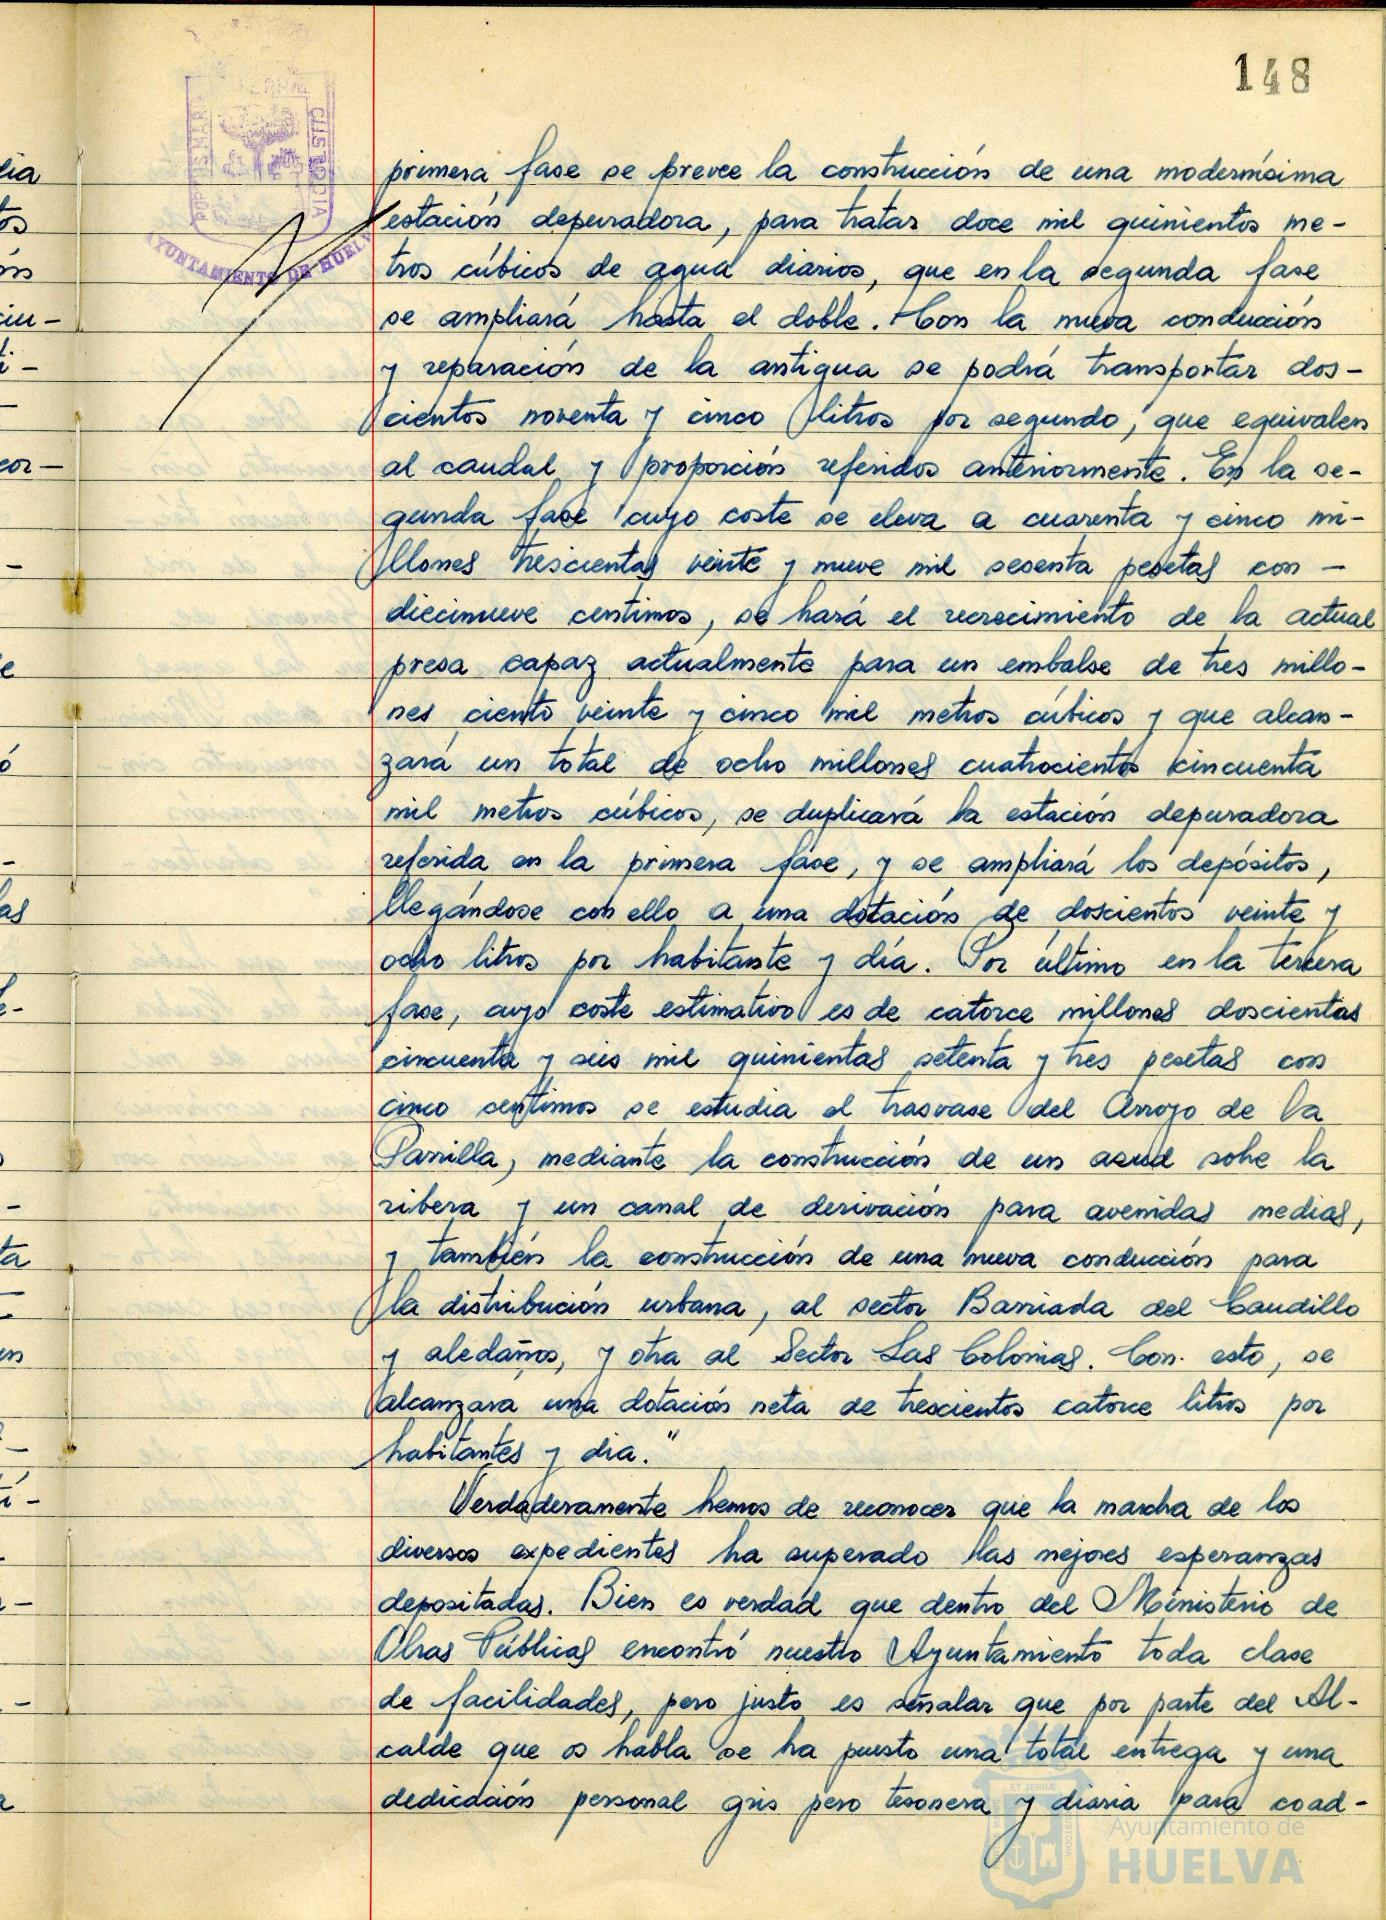 148
PORTUS MARIS
ET TERRAE
CUSTODIA
AYUNTAMIENTO DE HUELVA
primera fase se prevee la construcción de una modernísima
estación depuradora, para tratar doce mil quinientos me-
tros cúbicos de agua diarios, que en la segunda fase
se ampliará hasta el doble. Con la nueva conducción
y reparación de la antigua se podrá transportar dos-
cientos noventa y cinco litros por segundo, que equivalen
al caudal y proporción referidos anteriormente. En la se-
gunda fase cuyo coste se eleva a cuarenta y cinco mi-
llones trescientas veinte y nueve mil sesenta pesetas con -
diecinueve centimos, se hará el recrecimiento de la actual
presa capaz actualmente para un embalse de tres millo-
nes ciento veinte y cinco mil metros cúbicos y que alcan-
zará un total de ocho millones cuatrocientos cincuenta
mil metros cúbicos, se duplicará la estación depuradora
referida en la primera fase, y se ampliará los depósitos,
llegándose con ello a una dotación de doscientos veinte y
ocho litros por habitante y día. Por último en la tercera
fase, cuyo coste estimativo es de catorce millones doscientas
cincuenta y seis mil quinientas setenta y tres pesetas con
cinco centimos se estudia el trasvase del Arroyo de la
Parrilla, mediante la construcción de un azud sobre la
ribera y un canal de derivación para avenidas medias,
y también la construcción de una nueva conducción para
la distribución urbana, al sector Barriada del Caudillo
y aledaños, y otra al Sector Las Colonias. Con esto, se
alcanzara una dotación neta de trescientos catorce litros por
habitantes y dia."
Verdaderamente hemos de reconocer que la marcha de los
diversos expedientes ha superado las mejores esperanzas
depositadas. Bien es verdad que dentro del Ministerio de
Obras Públicas encontró nuestro Ayuntamiento toda clase
de facilidades, pero justo es señalar que por parte del Al-
calde que os habla se ha puesto una total entrega y una
dedicación personal gris pero tesonera y diaria para coad-
Ayuntamiento de
HUELVA